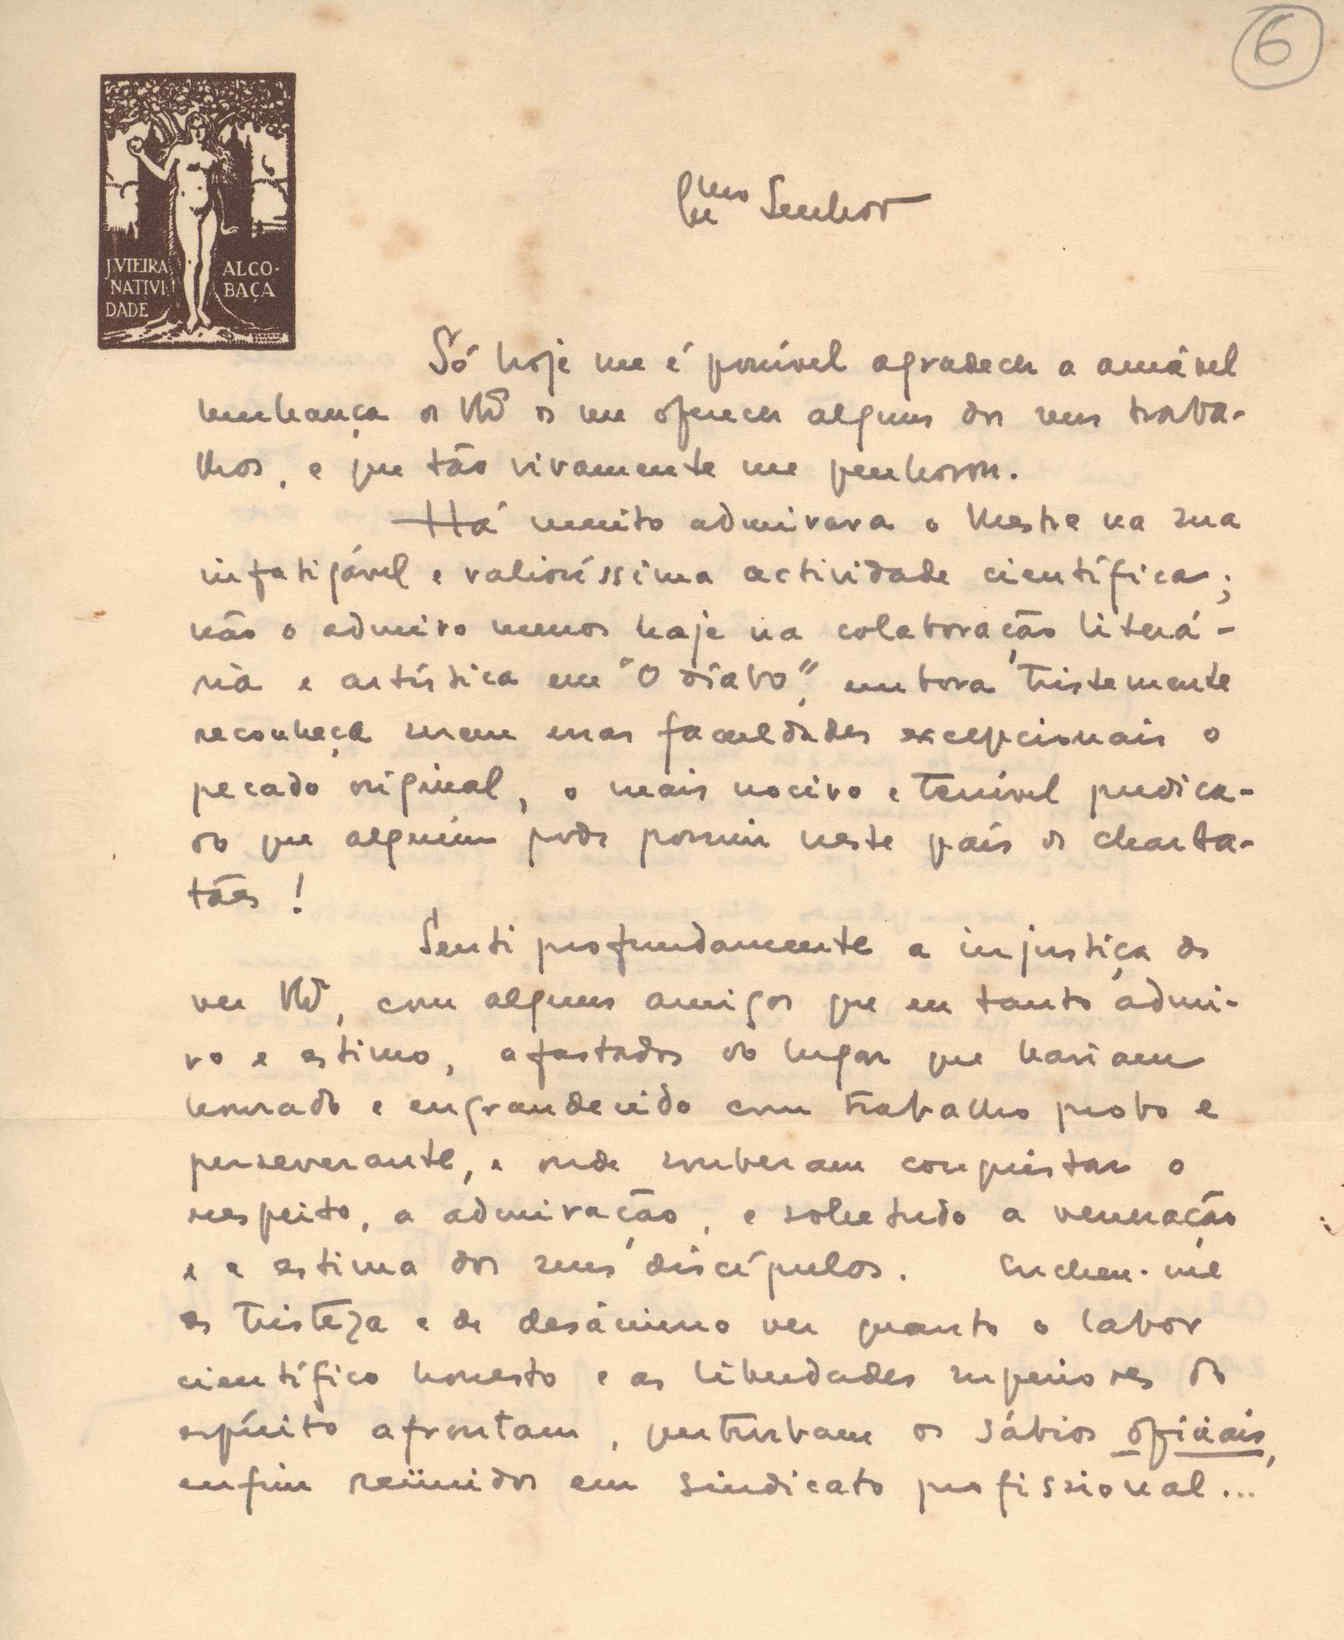 6
J. VIEIRA NATIVIDADE
ALCOBAÇA
Exmo Senhor
Só hoje me é possível agradecer a amável
lembrança de V. de me oferecer alguns dos seus traba-
lhos, e que tão vivamente me penhorou.
Há muito admirava o Mestre na sua
infatigável e valiosíssima actividade científica;
não o admiro menos hoje na colaboração literá-
ria e artística em "O Diabo", embora tristemente
reconheça nessas faculdades excepcionais o
pecado original, o mais nocivo e terrível predica-
do que alguém pode possuir neste país de charla-
tães!
Senti profundamente a injustiça de
ver V., com alguns amigos que eu tanto admi-
ro e estimo, afastados do lugar que haviam
honrado e engrandecido com trabalho probo e
perseverante, e onde souberam conquistar o
respeito, a admiração, e sobretudo a veneração
e a estima dos seus discípulos. Encheu-me
de tristeza e de desânimo ver quanto o labor
científico honesto e as liberdades superiores do
espírito afrontam, perturbam os sábios oficiais,
enfim reünidos em sindicato profissional...